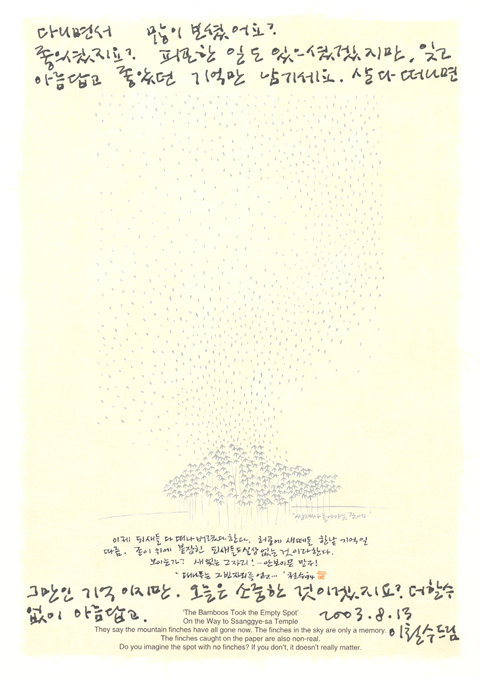 다니면서 많이 보셨어요?
좋으셨지요? 피곤한 일도 있으셨겠지만, 잊고
아름답고 좋았던 기억만 남기세요. 살다 떠나면
이제 되새들 다 떠나버렸다고 한다. 허공에 새떼들 한낱 기억일
따름. 종이 위에 붙잡힌 되새들도 실상 없는 것이라 한다.
보이는가? 새 없는 그 자리! - 안보이면 말구!
그만인 기억이지만. 오늘은 소중한 것이겠지요? 더할수
없이 아름답고.
2003.8.13
이철수드림
'The Bamboos Took the Empty Spot'
On the Way to Ssanggye-sa Temple
They say the mountain finches have all gone now. The finches in the sky are only a memory.
The finches caught on the paper are also non-real.
Do you imagine the spot with no finches? If you don't, it doesn't really matter.